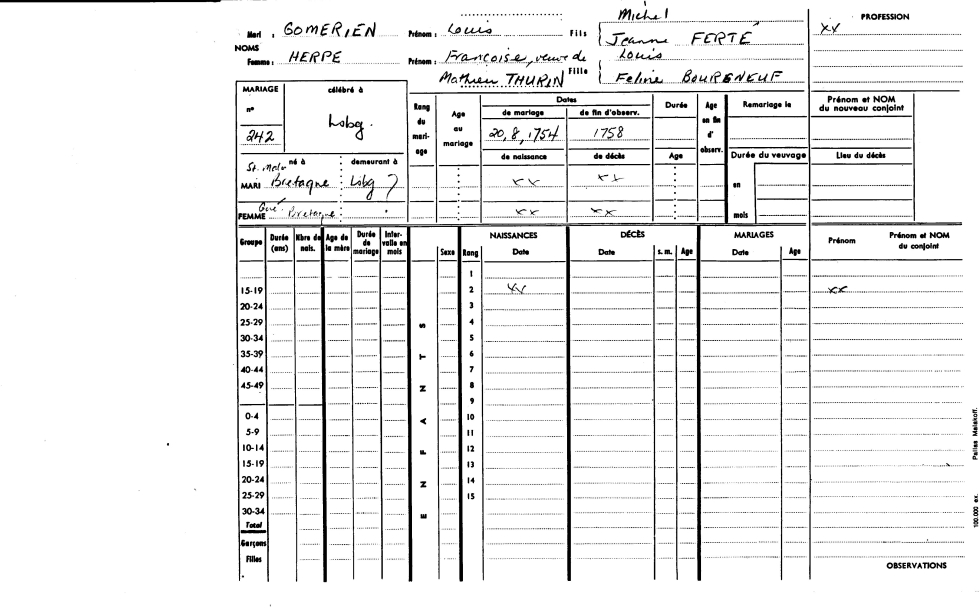 Michel
PROFESSION
Mari : GOMERIEN Prénom : Louis Fils Jeanne FERTÉ xx
NOMS
Femme : HERPE Prénom : Francoise, veuve de Fille Louis
Mathieu THURIN Feline BOURENEUF
MARIAGE célébré à Rang du mari-age Age au mariage Dates Durée Age en fin d' observ. Remariage le Prénom et NOM du nouveau conjoint
n° de mariage de fin d'observ.
242 Lsbg. 20,8,1754 1758
de naissance de décès Age Durée du veuvage Lieu du décès
né à demeurant à
MARI Bretagne Lsbg ? xx xx en
FEMME Bretagne xx xx mois
Groupe Durée (ans) Nbre de nais. Age de la mère Durée de mariage Inter-valle en mois Sexe Rang NAISSANCES DÉCÈS MARIAGES Prénom Prénom et NOM du conjoint
Date Date s. m. Age Date Age
1
15-19 2 xx xx
20-24 3
25-29 S 4
30-34 5
35-39 T 6
40-44 7
45-49 N 8
9
0-4 A 10
5-9 11
10-14 F 12
15-19 13
20-24 N 14
25-29 15
30-34 E
Total
Garçons
Filles
OBSERVATIONS
100.000 ex. Pallas Malakoff.